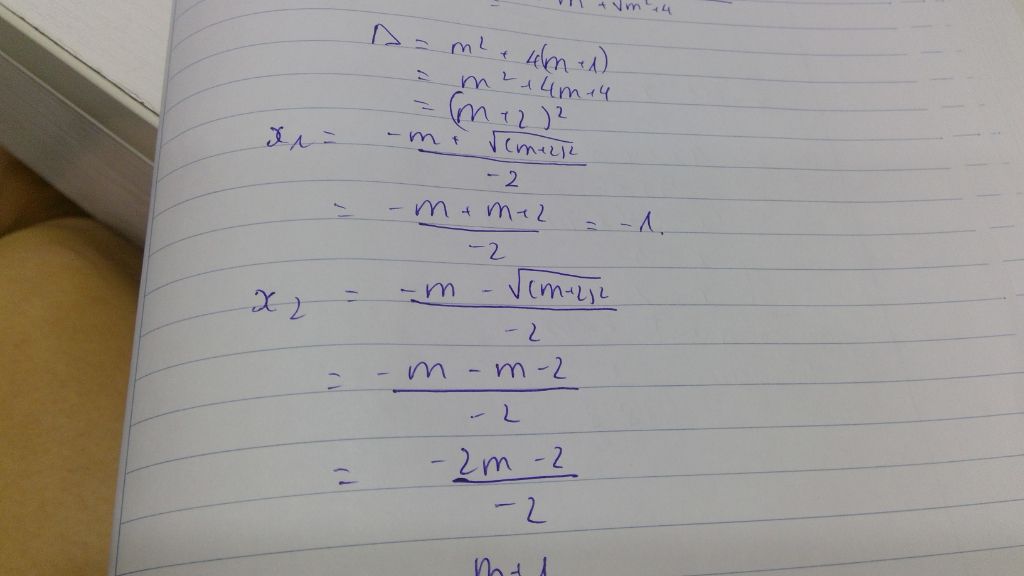 = m + √m²+4
Δ = m² + 4(m+1)
= m² + 4m+4
= (m+2)²
x₁ = -m + √(m+2)² / -2
= -m + m+2 / -2 = -1.
x₂ = -m - √(m+2)² / -2
= -m - m-2 / -2
= -2m -2 / -2
m+1